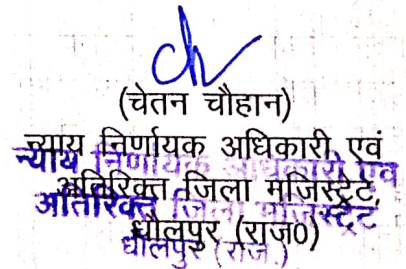 (चेतन चौहान)
न्याय निर्णायक अधिकारी एवं
अतिरिक्त जिला मजिस्ट्रेट,
धौलपुर (राज0)
न्याय निर्णायक अधिकारी एवं
अतिरिक्त जिला मजिस्ट्रेट
धौलपुर (राज.)